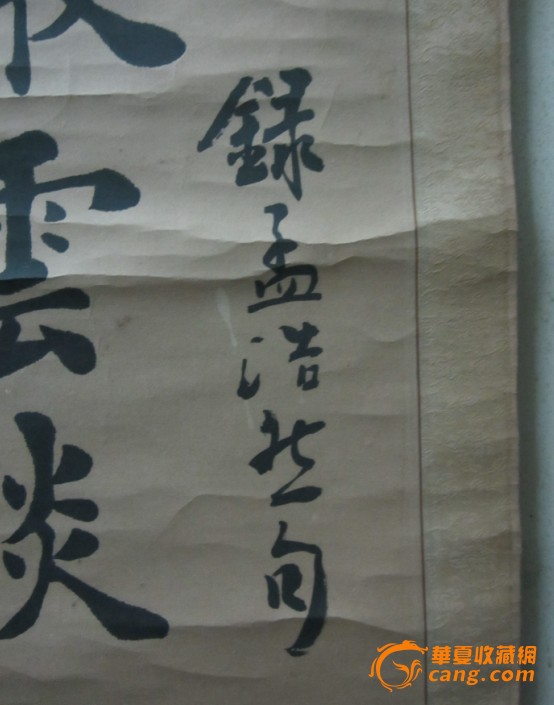 錄孟浩然句
雲淡
華夏收藏網
cang.com